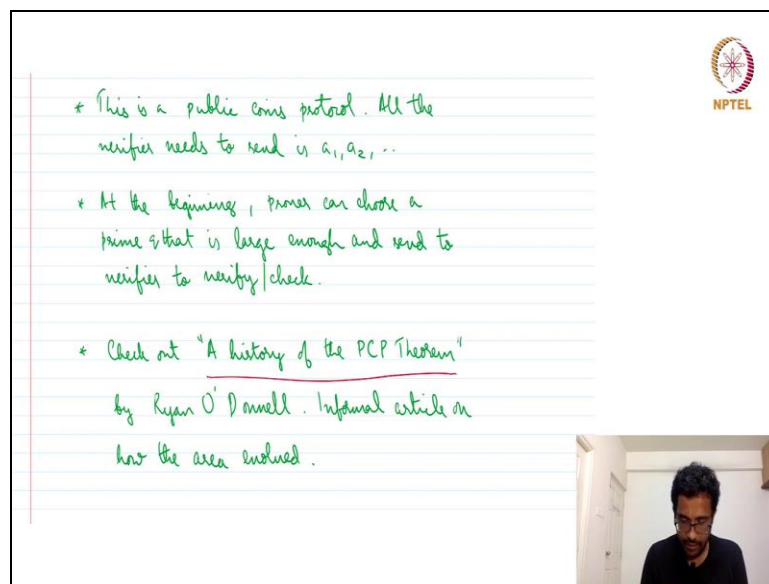 * This is a public coins protocol. All the
verifier needs to send is a₁, a₂, ..
* At the beginning, prover can choose a
prime q that is large enough and send to
verifier to verify/check.
* Check out "A history of the PCP Theorem"
by Ryan O'Donnell. Informal article on
how the area evolved.
NPTEL